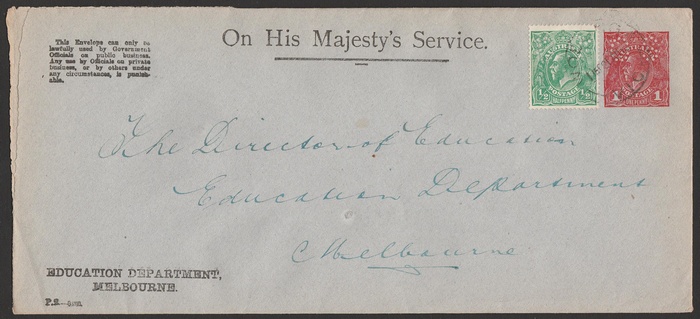 This Envelope can only be
lawfully used by Government
Officials on public business.
Any use by Officials on private
business, or by others under
any circumstances, is punish-
able.
On His Majesty's Service.
AUSTRALIA
½ ½
POSTAGE
HALFPENNY
AUSTRALIA
1 1
POSTAGE
ONE PENNY
The Director of Education
Education Department
Melbourne
EDUCATION DEPARTMENT,
MELBOURNE.